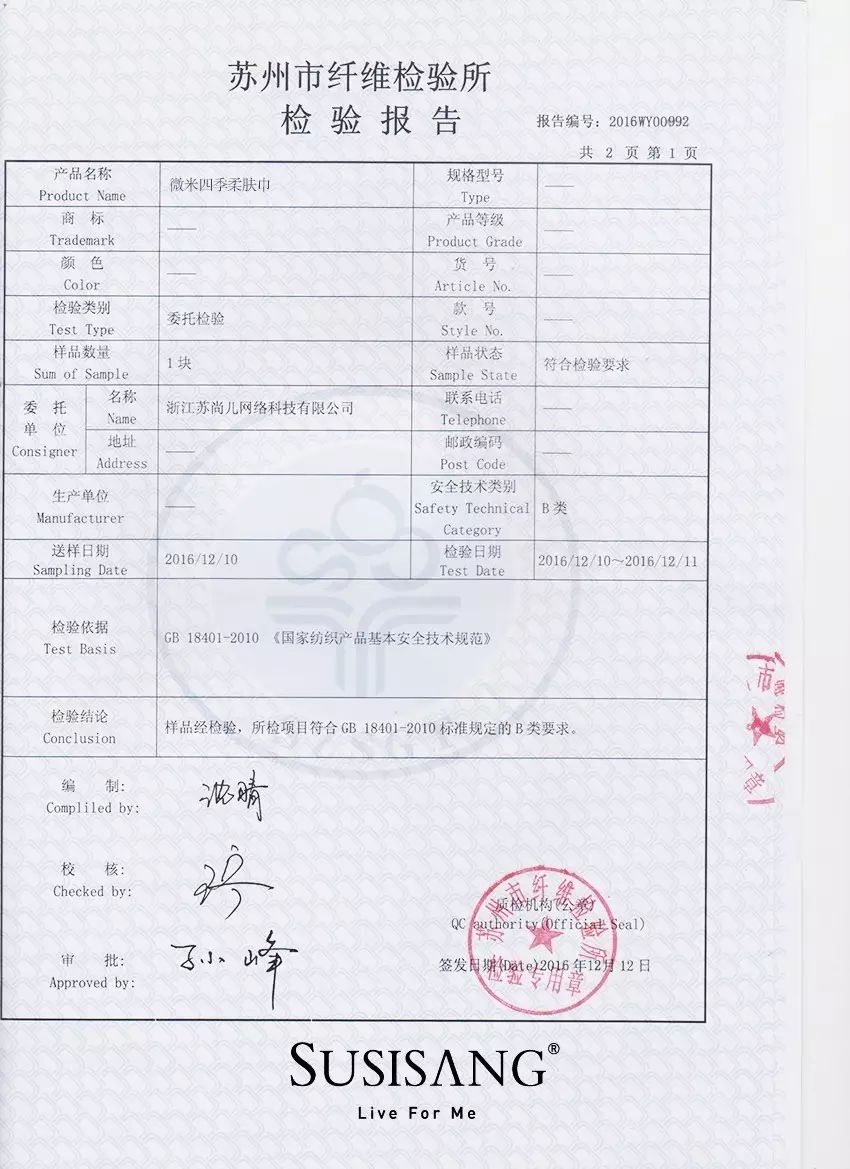 苏州市纤维检验所
检验报告
报告编号：2016WY00992
共 2 页 第 1 页
产品名称
Product Name
微米四季柔肤巾
规格型号
Type
——
商 标
Trademark
——
产品等级
Product Grade
——
颜 色
Color
——
货 号
Article No.
——
检验类别
Test Type
委托检验
款 号
Style No.
——
样品数量
Sum of Sample
1块
样品状态
Sample State
符合检验要求
委 托
单 位
Consigner
名称
Name
浙江苏尚儿网络科技有限公司
联系电话
Telephone
——
地址
Address
——
邮政编码
Post Code
——
生产单位
Manufacturer
——
安全技术类别
Safety Technical
Category
B类
送样日期
Sampling Date
2016/12/10
检验日期
Test Date
2016/12/10～2016/12/11
检验依据
Test Basis
GB 18401-2010 《国家纺织产品基本安全技术规范》
检验结论
Conclusion
样品经检验，所检项目符合GB 18401-2010标准规定的B类要求。
编 制：
Compliled by:
校 核：
Checked by:
审 批：
Approved by:
苏州市纤维检验所
质检机构(公章)
QC authority(Official Seal)
签发日期(Date)2016年12月12日
SUSISANG®
Live For Me